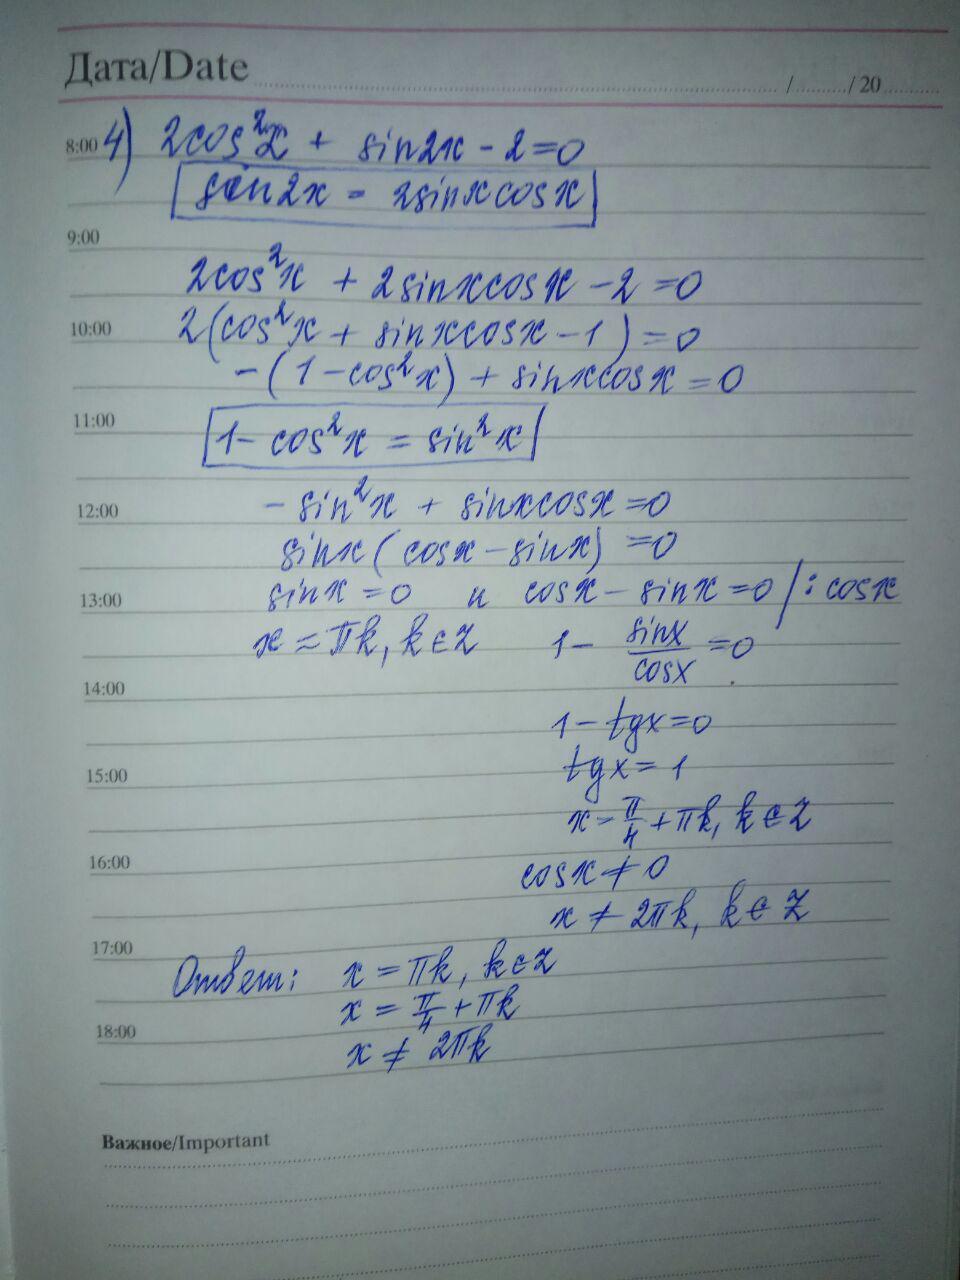 Дата/Date / / 20
8:00 4) 2cos²x + sin2x - 2 = 0
sin2x = 2sinxcosx
9:00
2cos²x + 2sinxcosx - 2 = 0
10:00 2(cos²x + sinxcosx - 1) = 0
-(1 - cos²x) + sinxcosx = 0
11:00
1 - cos²x = sin²x
12:00 - sin²x + sinxcosx = 0
sinx(cosx - sinx) = 0
13:00 sinx = 0 и cosx - sinx = 0 /: cosx
x = πk, k∈Z 1 - sinx/cosx = 0
14:00
1 - tgx = 0
15:00 tgx = 1
x = π/4 + πk, k∈Z
16:00 cosx ≠ 0
x ≠ 2πk, k∈Z
17:00
Ответ: x = πk, k∈Z
x = π/4 + πk
18:00 x ≠ 2πk
Важное/Important